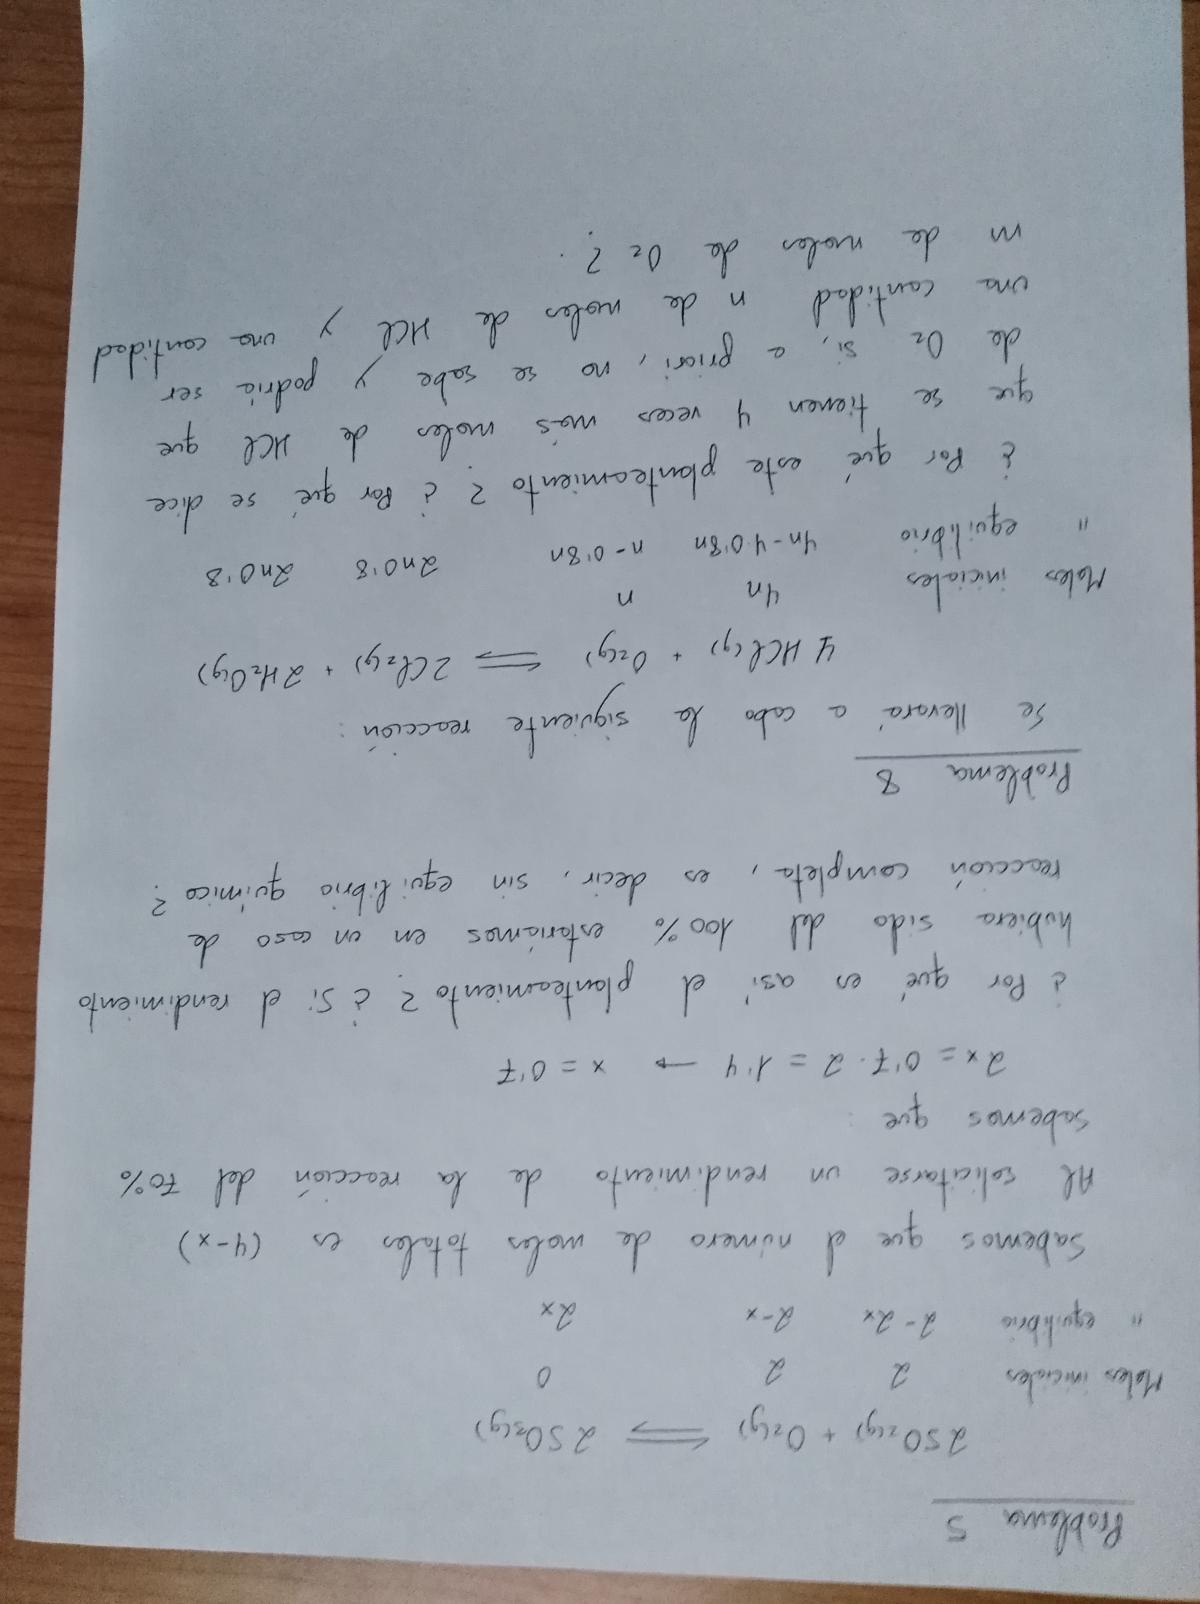 Problema 5
2SO2(g) + O2(g) ⇌ 2SO3(g)
Moles iniciales 2 2 0
" equilibrio 2-2x 2-x 2x
Sabemos que el número de moles totales es (4-x)
Al solicitarse un rendimiento de la reacción del 70%
sabemos que :
2x = 0'7 · 2 = 1'4 → x = 0'7
¿ Por qué es así el planteamiento ? ¿ Si el rendimiento
hubiera sido del 100% estaríamos en un caso de
reacción completa, es decir, sin equilibrio químico ?
Problema 8
Se llevará a cabo la siguiente reacción :
4 HCl(g) + O2(g) ⇌ 2Cl2(g) + 2H2O(g)
Moles iniciales 4n n
" equilibrio 4n-4·0'8n n-0'8n 2n0'8 2n0'8
¿ Por qué este planteamiento ? ¿ Por qué se dice
que se tienen 4 veces más moles de HCl que
de O2 si, a priori, no se sabe y podría ser
una cantidad n de moles de HCl y una cantidad
m de moles de O2 ?